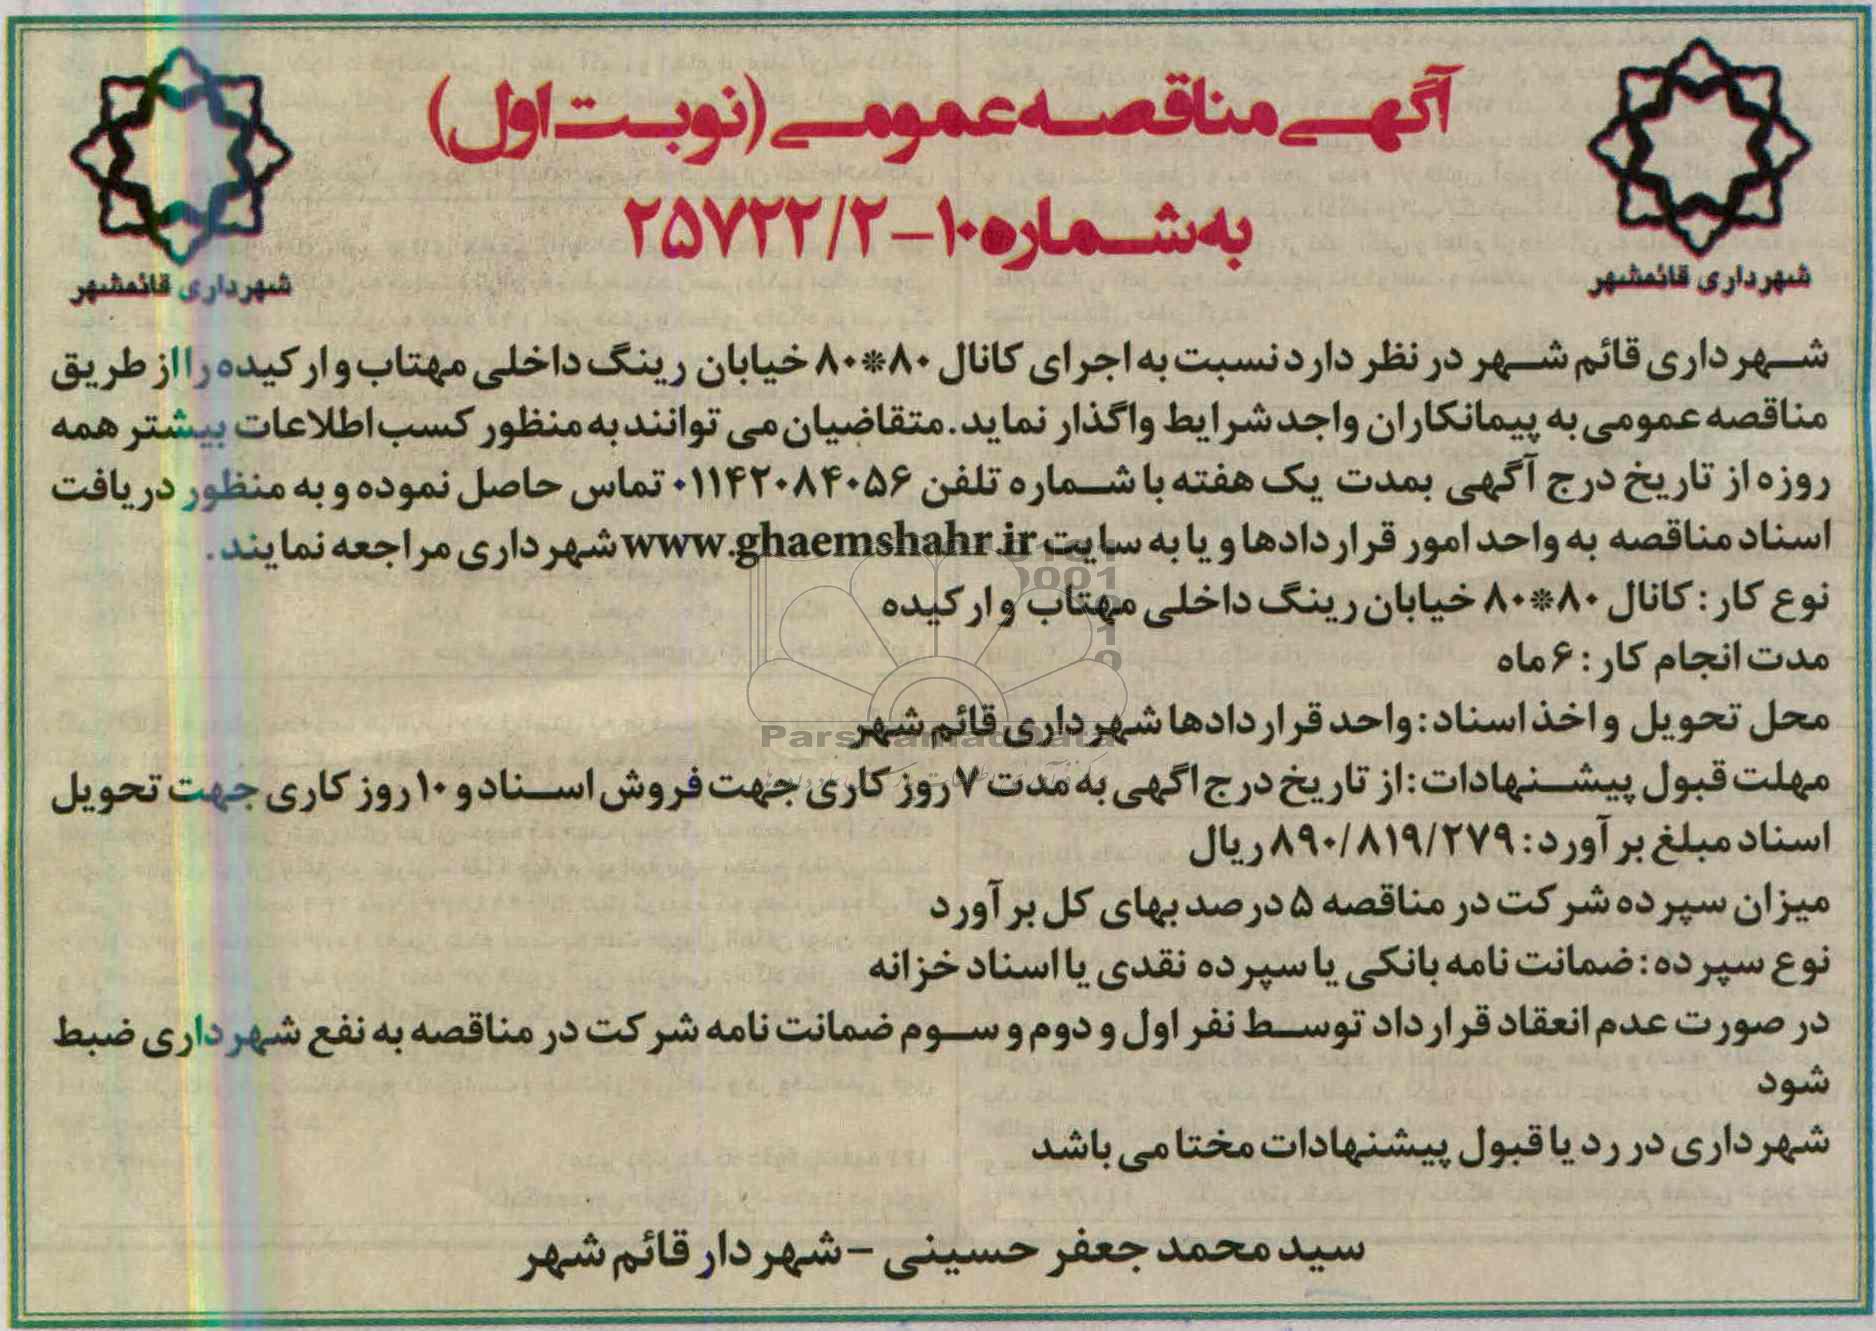 آگهی مناقصه عمومی (نوبت اول)
به شماره ۱۰-۲۵۷۲۲/۲
شهرداری قائمشهر
شهرداری قائمشهر
شهرداری قائم شهر در نظر دارد نسبت به اجرای کانال ۸۰*۸۰ خیابان رینگ داخلی مهتاب و ارکیده را از طریق
مناقصه عمومی به پیمانکاران واجد شرایط واگذار نماید. متقاضیان می توانند به منظور کسب اطلاعات بیشتر همه
روزه از تاریخ درج آگهی بمدت یک هفته با شماره تلفن ۰۱۱۴۲۰۸۴۰۵۶ تماس حاصل نموده و به منظور دریافت
اسناد مناقصه به واحد امور قراردادها و یا به سایت www.ghaemshahr.ir شهرداری مراجعه نمایند.
نوع کار: کانال ۸۰*۸۰ خیابان رینگ داخلی مهتاب و ارکیده
مدت انجام کار: ۶ ماه
محل تحویل و اخذ اسناد: واحد قراردادها شهرداری قائم شهر
مهلت قبول پیشنهادات: از تاریخ درج اگهی به مدت ۷ روز کاری جهت فروش اسناد و ۱۰ روز کاری جهت تحویل
اسناد مبلغ برآورد: ۸۹۰/۸۱۹/۲۷۹ ریال
میزان سپرده شرکت در مناقصه ۵ درصد بهای کل برآورد
نوع سپرده: ضمانت نامه بانکی یا سپرده نقدی یا اسناد خزانه
در صورت عدم انعقاد قرارداد توسط نفر اول و دوم و سوم ضمانت نامه شرکت در مناقصه به نفع شهرداری ضبط
شود
شهرداری در رد یا قبول پیشنهادات مختا می باشد
سید محمد جعفر حسینی - شهردار قائم شهر